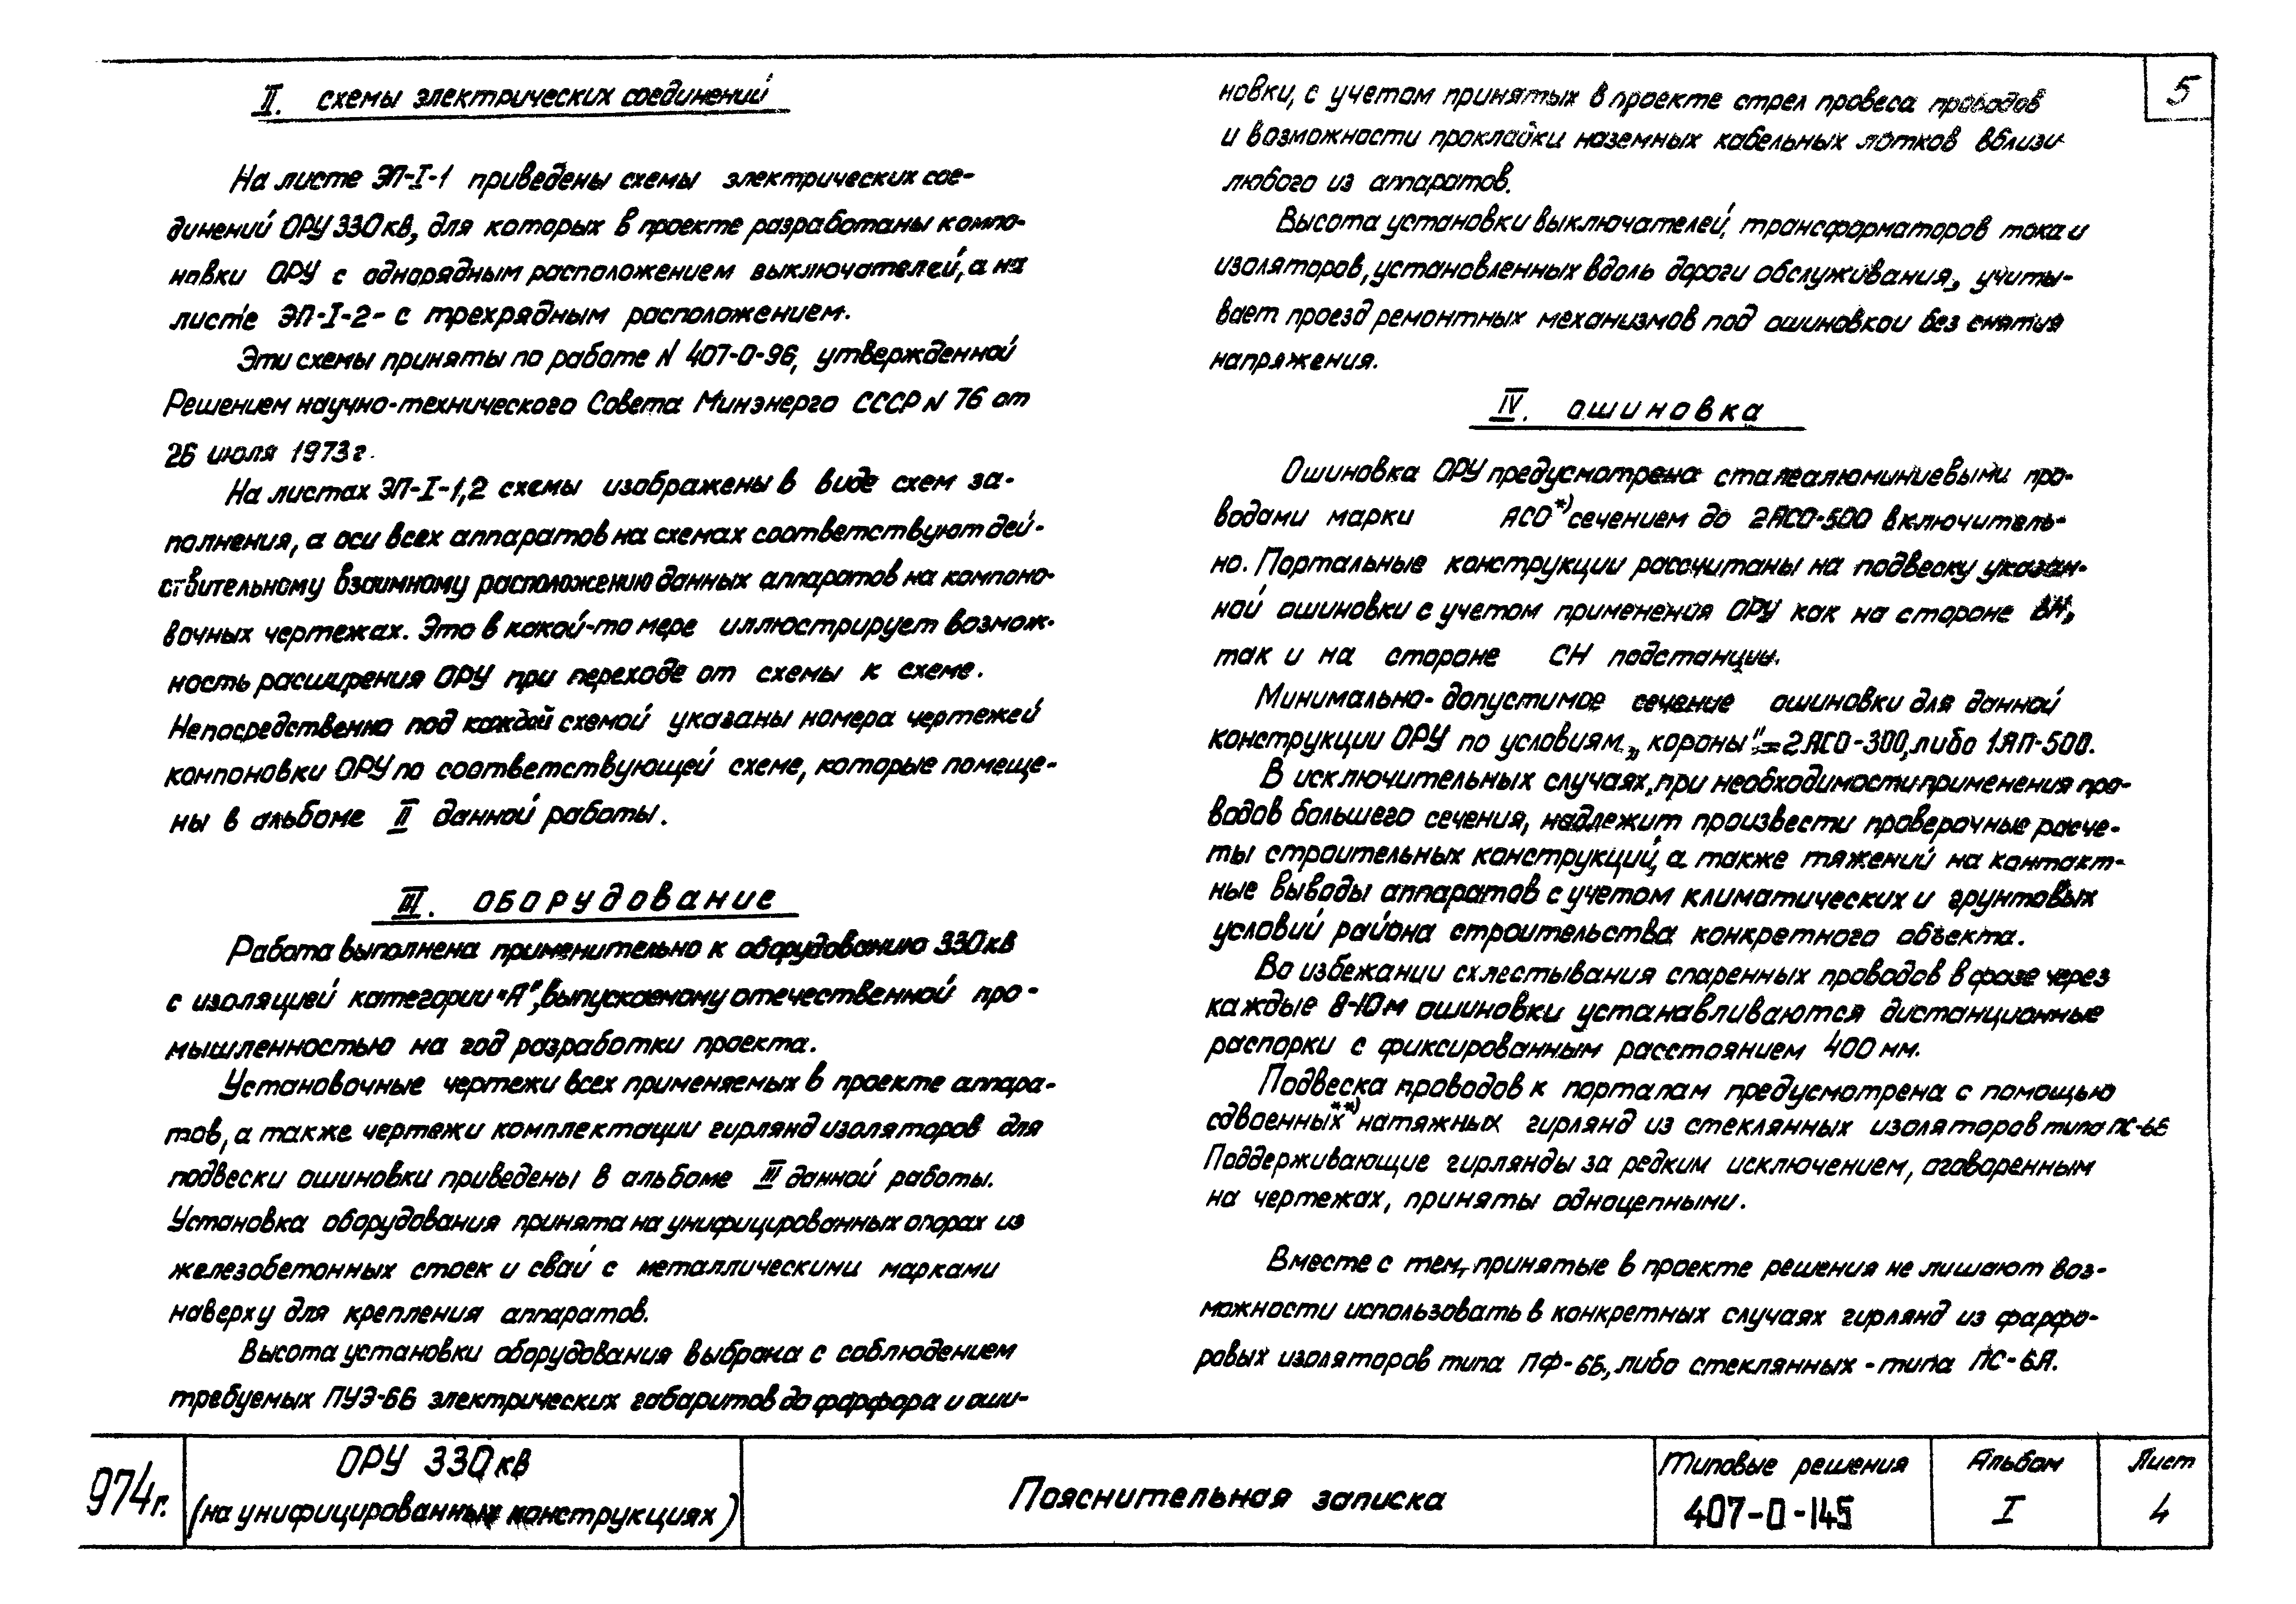 II. схемы электрических соединений
На листе ЭП-I-1 приведены схемы электрических сое-
динений ОРУ 330 кв, для которых в проекте разработаны компо-
новки ОРУ с однорядным расположением выключателей, а на
листе ЭП-I-2- с трехрядным расположением.
Эти схемы приняты по работе N 407-0-96, утвержденной
Решением научно-технического Совета Минэнерго СССР N 76 от
26 июля 1973 г.
На листах ЭП-I-1,2 схемы изображены в виде схем за-
полнения, а оси всех аппаратов на схемах соответствуют дей-
ствительному взаимному расположению данных аппаратов на компоно-
вочных чертежах. Это в какой-то мере иллюстрирует возмож-
ность расширения ОРУ при переходе от схемы к схеме.
Непосредственно под каждой схемой указаны номера чертежей
компоновки ОРУ по соответствующей схеме, которые помеще-
ны в альбоме II данной работы.
III. оборудование
Работа выполнена применительно к оборудованию 330 кв
с изоляцией категории "А", выпускаемому отечественной про-
мышленностью на год разработки проекта.
Установочные чертежи всех применяемых в проекте аппара-
тов, а также чертежи комплектации гирлянд изоляторов для
подвески ошиновки приведены в альбоме III данной работы.
Установка оборудования принята на унифицированных опорах из
железобетонных стоек и свай с металлическими марками
наверху для крепления аппаратов.
Высота установки оборудования выбрана с соблюдением
требуемых ПУЭ-66 электрических габаритов до фарфора и оши-
5
новки, с учетом принятых в проекте стрел провеса проводов
и возможности прокладки наземных кабельных лотков вблизи
любого из аппаратов.
Высота установки выключателей, трансформаторов тока и
изоляторов, установленных вдоль дороги обслуживания, учиты-
вает проезд ремонтных механизмов под ошиновкой без снятия
напряжения.
IV. ошиновка
Ошиновка ОРУ предусмотрена сталеалюминиевыми про-
водами марки АСО*) сечением до 2АСО-500 включитель-
но. Портальные конструкции рассчитаны на подвеску указан-
ной ошиновки с учетом применения ОРУ как на стороне ВН,
так и на стороне СН подстанции.
Минимально-допустимое сечение ошиновки для данной
конструкции ОРУ по условиям „короны"=2АСО-300, либо 1АП-500.
В исключительных случаях, при необходимости применения про-
водов большего сечения, надлежит произвести проверочные расче-
ты строительных конструкций, а также тяжений на контакт-
ные выводы аппаратов с учетом климатических и грунтовых
условий района строительства конкретного объекта.
Во избежании схлестывания спаренных проводов в фазе через
каждые 8-10 м ошиновки устанавливаются дистанционные
распорки с фиксированным расстоянием 400 мм.
Подвеска проводов к порталам предусмотрена с помощью
сдвоенных**) натяжных гирлянд из стеклянных изоляторов типа ПС-6Б
Поддерживающие гирлянды за редким исключением, оговоренным
на чертежах, приняты одноцепными.
Вместе с тем, принятые в проекте решения не лишают воз-
можности использовать в конкретных случаях гирлянд из фарфо-
ровых изоляторов типа ПФ-6Б, либо стеклянных - типа ПС-6А.
974г.
ОРУ 330 кв
(на унифицированных конструкциях)
Пояснительная записка
Типовые решения
407-0-145
Альбом
I
Лист
4